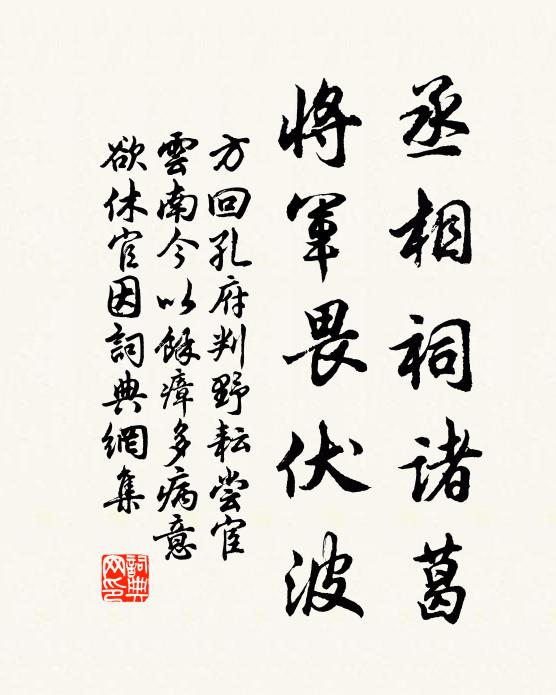 丞相祠诸葛
将军畏伏波
方回孔府判野耘尝宦
雲南今以餘瘴多病意
欲休官因詞典網集
詞典网印